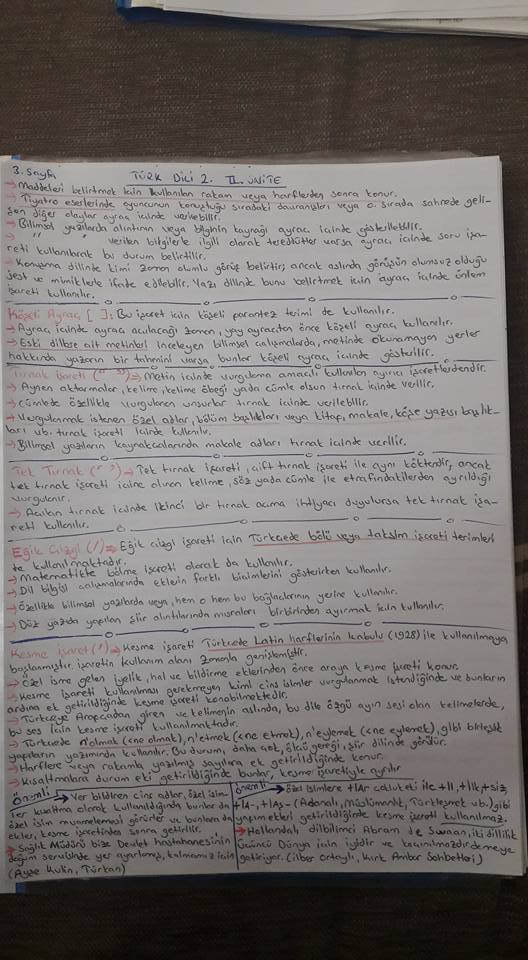 3. Sayfa
TÜRK DİLİ 2. II. ÜNİTE
→ Maddeleri belirtmek için kullanılan rakam veya harflerden sonra konur.
→ Tiyatro eserlerinde oyuncunun konuştuğu sıradaki davranışları veya o sırada sahnede geli-
şen diğer olaylar ayraç içinde verilebilir.
→ Bilimsel yazılarda alıntının veya bilginin kaynağı ayraç içinde gösterilebilir.
→ " " verilen bilgilerle ilgili olarak tereddütler varsa ayraç içinde soru işa-
reti kullanılarak bu durum belirtilir.
→ Konuşma dilinde kimi zaman olumlu görüş belirtir; ancak aslında görüşün olumsuz olduğu
jest ve mimiklerle ifade edilebilir. Yazı dilinde bunu belirtmek için ayraç içinde ünlem
işareti kullanılır.
Köşeli Ayraç [ ]: Bu işaret için köşeli parantez terimi de kullanılır.
→ Ayraç içinde ayraç açılacağı zaman, yay ayraçtan önce köşeli ayraç kullanılır.
→ Eski dillere ait metinleri inceleyen bilimsel çalışmalarda, metinde okunamayan yerler
hakkında yazarın bir tahmini varsa bunlar köşeli ayraç içinde gösterilir.
Tırnak işareti (" ") → Metin içinde vurgulama amaçlı kullanılan ayırıcı işaretlerdendir.
→ Aynen aktarmalar, kelime, kelime öbeği yada cümle olsun tırnak içinde verilir.
→ Cümlede özellikle vurgulanan unsurlar tırnak içinde verilebilir.
→ Vurgulanmak istenen özel adlar, bölüm başlıkları veya kitap, makale, köşe yazısı başlık-
ları vb. tırnak işareti içinde kullanılır.
→ Bilimsel yazıların kaynakçalarında makale adları tırnak içinde verilir.
Tek Tırnak (' ') → Tek tırnak işareti, çift tırnak işareti ile aynı köktendir, ancak
tek tırnak işareti içine alınan kelime, söz yada cümle ile etrafındakilerden ayrıldığı
vurgulanır.
→ Açılan tırnak içinde ikinci bir tırnak açma ihtiyacı duyulursa tek tırnak işa-
reti kullanılır.
Eğik Çizgi (/) → Eğik çizgi işareti için Türkçede bölü veya taksim işareti terimleri
de kullanılmaktadır.
→ Matematikte bölme işareti olarak da kullanılır.
→ Dil bilgisi çalışmalarında eklerin farklı biçimlerini gösterirken kullanılır.
→ Özellikle bilimsel yazılarda veya, hem o hem bu bağlaçlarının yerine kullanılır.
→ Düz yazıda yapılan şiir alıntılarında mısraları birbirinden ayırmak için kullanılır.
Kesme işareti (') → Kesme işareti Türkçede Latin harflerinin kabulu (1928) ile kullanılmaya
başlanmıştır. işaretin kullanım alanı zamanla genişlemiştir.
→ Özel isme gelen iyelik, hal ve bildirme eklerinden önce araya kesme işareti konur.
→ Kesme işareti kullanılması gerekmeyen kimi cins isimler vurgulanmak istendiğinde ve bunların
ardına ek getirildiğinde kesme işareti konabilmektedir.
→ Türkçeye Arapçadan giren ve kelimenin aslında, bu dile özgü ayın sesi olan kelimelerde,
bu ses için kesme işareti kullanılmaktadır.
→ Türkçede n'olmak (<ne olmak), n'etmek (<ne etmek), n'eylemek (<ne eylemek), gibi birleşik
yapıların yazımında kullanılır. Bu durum, daha çok, ölçü gereği, şiir dilinde görülür.
→ Harflere veya rakamla yazılmış sayılara ek getirildiğinde konur.
→ Kısaltmalara durum eki getirildiğinde bunlar, kesme işaretiyle ayrılır
Önemli → Yer bildiren cins adlar, özel isim-
ler kısaltma olarak kullanıldığında bunlar da
özel isim muamelesi görürler ve bunlara da
ekler, kesme işaretinden sonra getirilir.
→ Sağlık Müdürü bize Devlet hastahanesi'nin
doğum servisinde yer ayarlamış, kalmamız için
(Ayşe Kulin, Türkan)
önemli → özel isimlere +lAr çokluk eki ile +lI, +lIk, +siz,
+lA-, +lAş- (Adanalı, Müslümanlık, Türkleşmek vb.) gibi
yapım ekleri getirildiğinde kesme işareti kullanılmaz.
→ Hollandalı dilbilimci Abram de Swaan, iki dillilik
Üçüncü Dünya için iyidir ve kaçınılmazdır demeye
getiriyor. (İlber Ortaylı, Kırk Ambar Sohbetleri)